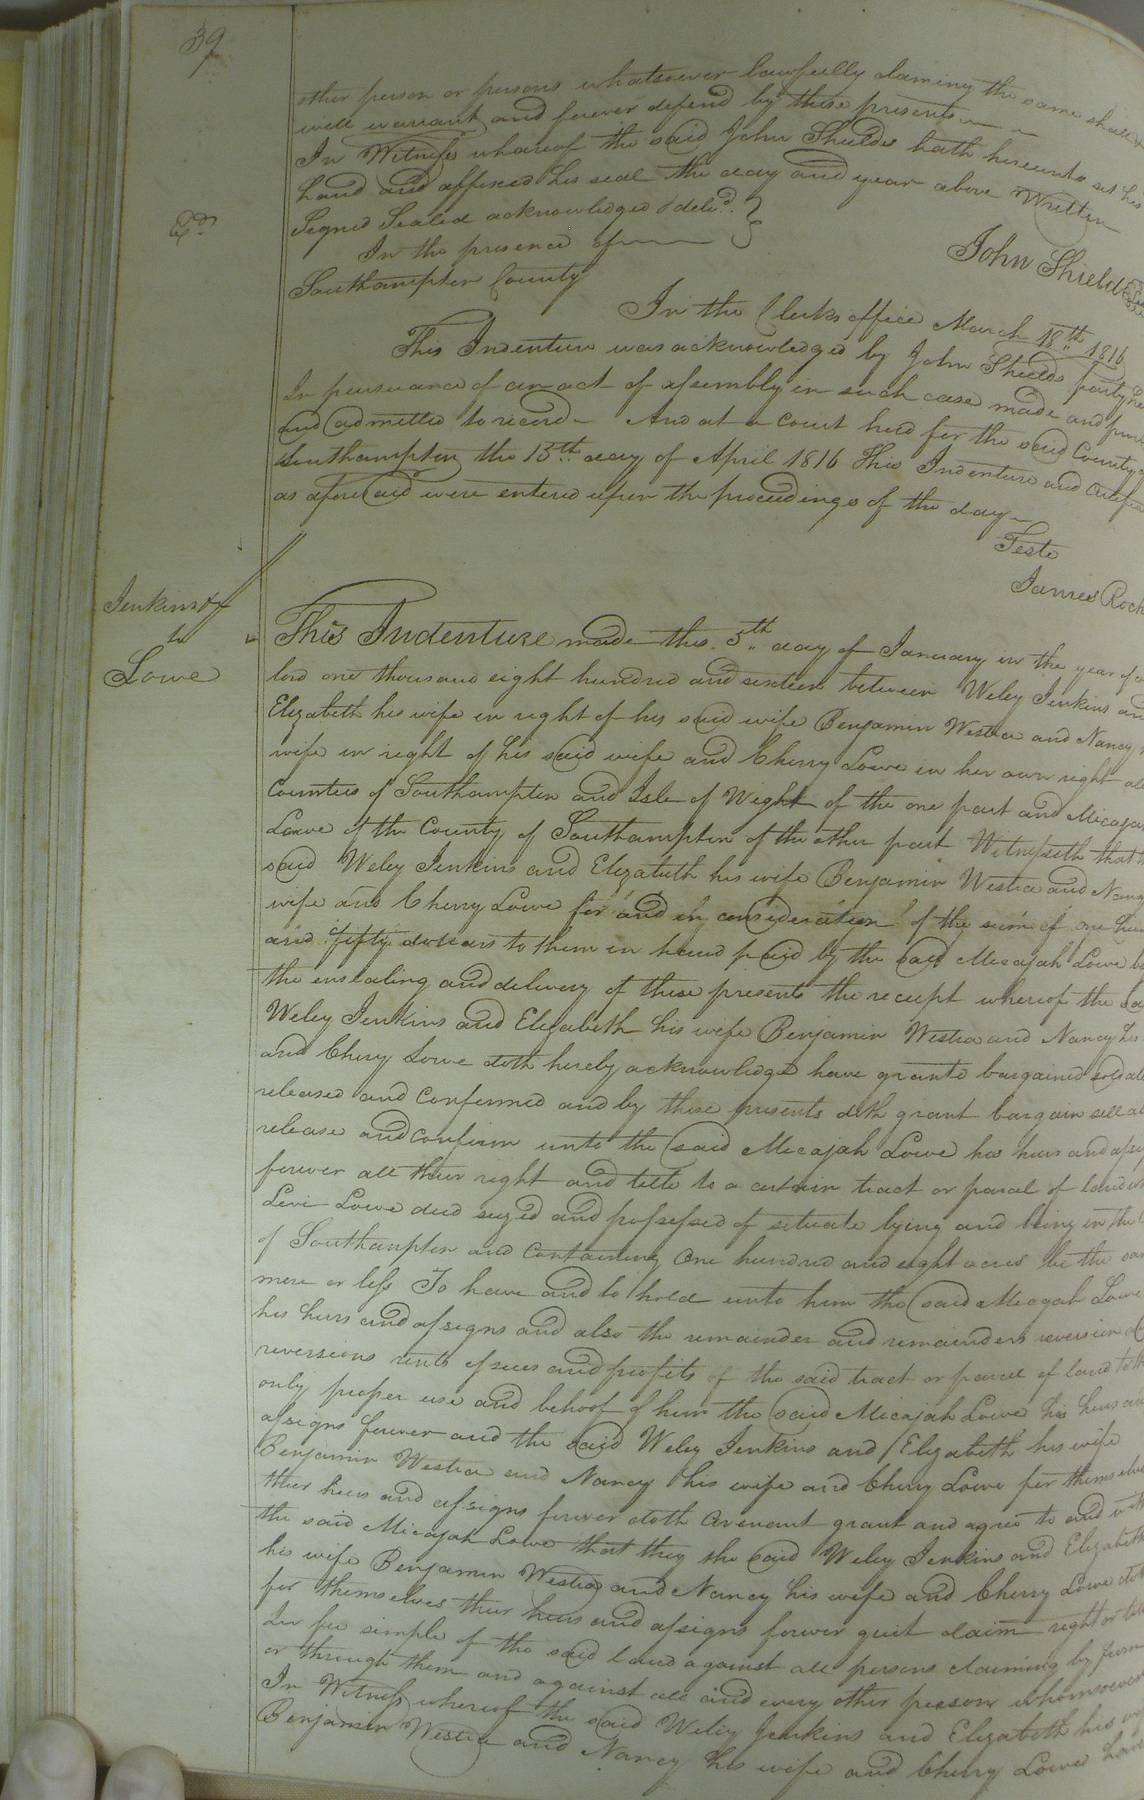 39
other person or persons whatsoever lawfully claming the same shall &
will warrant and forever defend by these presents
In Witness whareof the said John Shields hath hereunto set his
hand and affixed his seal the day and year above Written
Signed Sealed acknowledged & deliv.d
In the presence of
John Shields
Ex.d
Southampton County
In the Clerks office March 18th 1816
This Indenture was acknowledged by John Shields party
In pursuance of an act of assembly in such case made and
and admitted to record - And at a Court held for the said County of
Southampton the 15th day of April 1816 This Indenture and
as aforesaid were entered upon the proceedings of the day -
Teste
James Roch
Jenkins &c
to
Lowe
This Indenture made this 5th day of January in the year of
lord one thousand eight hundred and sixteen between Weley Jenkins and
Elizabeth his wife in right of his said wife Benjamin Westra and Nancy
wife in right of his said wife and Cherry Lowe in her own right
Counties of Southampton and Isle of Wight of the one part and Micajah
Lowe of the County of Southampton of the other part Witnesseth that
said Weley Jenkins and Elizabeth his wife Benjamin Westra and Nancy
wife and Cherry Lowe for and in consideration of the sum of one
and fifty dollars to them in hand paid by the said Micajah Lowe
the ensealing and delivery of these presents the receipt whereof the
Weley Jenkins and Elizabeth his wife Benjamin Westra and Nancy his
and Cherry Lowe doth hereby acknowledge have granted bargained sold
released and Confirmed and by these presents doth grant bargain sell
release and confirm unto the said Micajah Lowe his heirs and
forever all their right and title to a certain tract or parcel of land
Levi Lowe decd seized and possessed of situate lying and being in the
of Southampton and Containing One hundred and eight acres be the
more or less To have and to hold unto him the said Micajah Lowe
his heirs and assigns and also the remainder and remainders reversion
reversions rents issues and profits of the said tract or parcel of land
only proper use and behoof of him the said Micajah Lowe his heirs
assigns forever and the said Weley Jenkins and Elizabeth his wife
Benjamin Westra and Nancy his wife and Cherry Lowe for themselves
their heirs and assigns forever doth Covenant grant and agree to and with
the said Micajah Lowe that they the said Weley Jenkins and Elizabeth
his wife Benjamin Westra and Nancy his wife and Cherry Lowe doth
for themselves their heirs and assigns forever quit claim right or
In fee simple of the said land against all persons claiming by from
or through them and against all and every other person whomsoever
In Witness whereof the said Weley Jenkins and Elizabeth his
Benjamin Westra and Nancy his wife and Cherry Lowe have